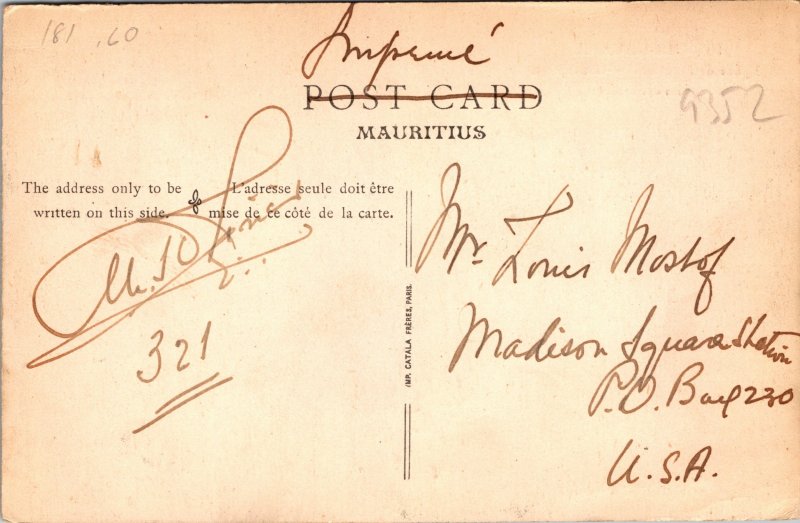 181 .60
Imprimé
POST CARD
MAURITIUS
9352
The address only to be
written on this side.
L'adresse seule doit être
mise de ce côté de la carte.
321
IMP. CATALA FRÈRES, PARIS.
Mr. Louis Mostof
Madison Square Station
P.O. Box 230
U.S.A.